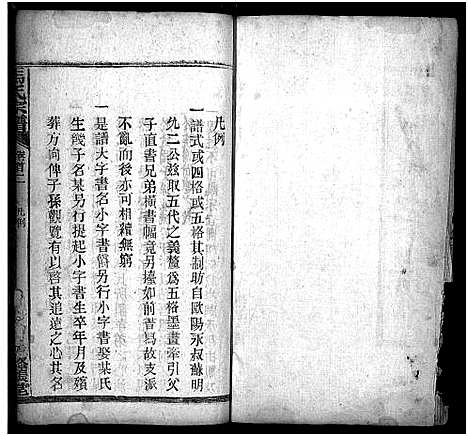 凡例
一譜式或四格或五格其制昉自歐陽永叔蘇明
允二公茲取五代之義釐爲五格墨畫牽引父
子直書兄弟橫書幅竟另擡如前昔爲故支派
不亂而後亦可相續無窮
一是譜大字書名小字書爵另行小字書娶某氏
生幾子名某另行提起小字書生卒年月及殯
葬方向俾子孫觀覽有以啓其追遠之心其名
氏宗譜
卷首一
凡例